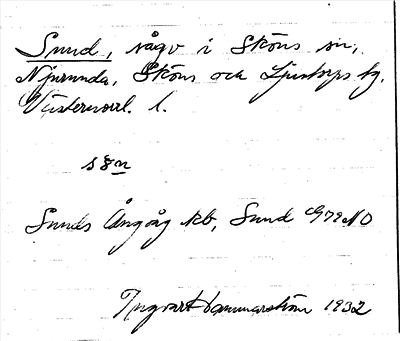 Sund, sågv i Sköns sn,
Njurunda, Sköns och Ljustorps tg,
Västernorrl. l.
sån
Sunds Ångsåg kb, Sund G79NO
Yngvar Hammarström 1932